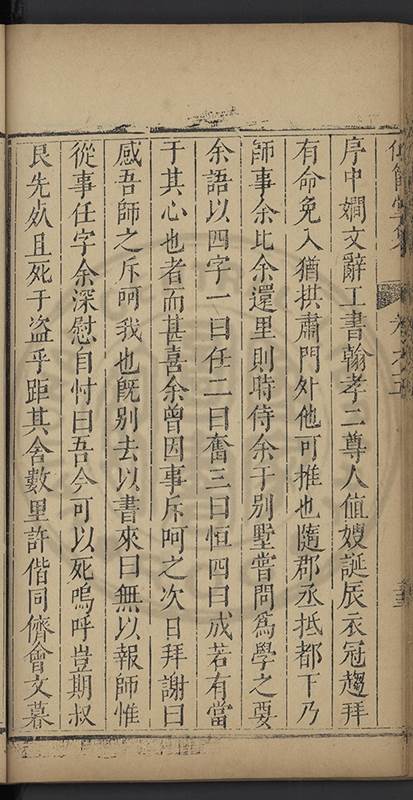 序中嫺文辭工書翰孝二尊人值嫂誕辰衣冠趨拜
有命免入猶拱肅門外他可推也隨郡丞抵都下乃
師事余比余還里則時侍余于別墅嘗問爲學之要
余語以四字一曰任二曰奮三曰恒四曰成若有當
于其心也者而甚喜余曾因事斥呵之次日拜謝曰
感吾師之斥呵我也旣别去以書來曰無以報師惟
從事任字余深慰自忖曰吾今可以死嗚呼豈期叔
艮先㱙且死于盗乎距其舍數里許偕同儕會文暮